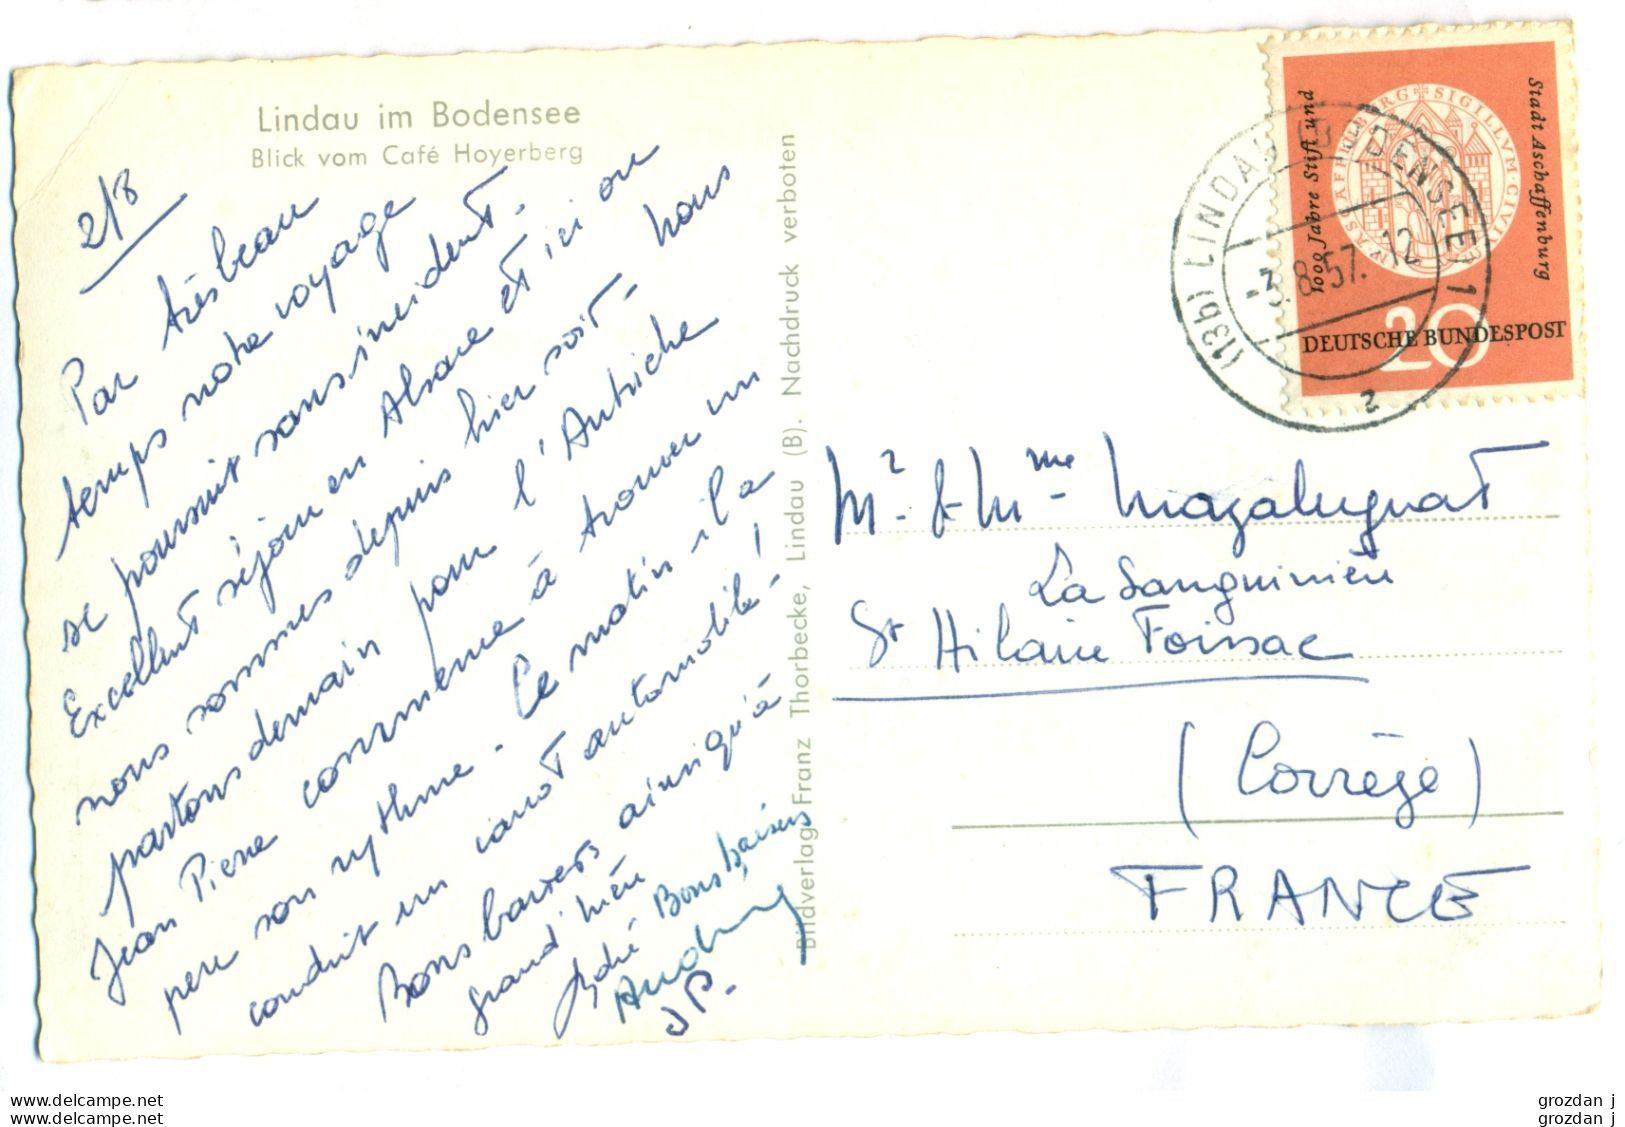 Lindau im Bodensee
Blick vom Café Hoyerberg
2/8
Par très beau
temps notre voyage
se poursuit sans incident.
Excellent séjour en Alsace et ici où
nous sommes depuis hier soir - nous
partons demain pour l'Autriche
Jean Pierre commence à trouver un
peu son rythme - Ce matin il a
conduit un canot automobile !
Bons baisers ainsi qu'à
grand'mère
André
Bons baisers
Audrey
JP.
Bildverlag Franz Thorbecke, Lindau (B). Nachdruck verboten
1000 Jahre Stift und
Stadt Aschaffenburg
SIGILLVM·CIVI
20
DEUTSCHE BUNDESPOST
(13b) LINDAU (BODENSEE) 1
-3.8.57.12
z
Mr & Mme Mazalaygnat
La Sanguinière
St Hilaire Foissac
(Corrèze)
FRANCE
www.delcampe.net
www.delcampe.net
grozdan j
grozdan j